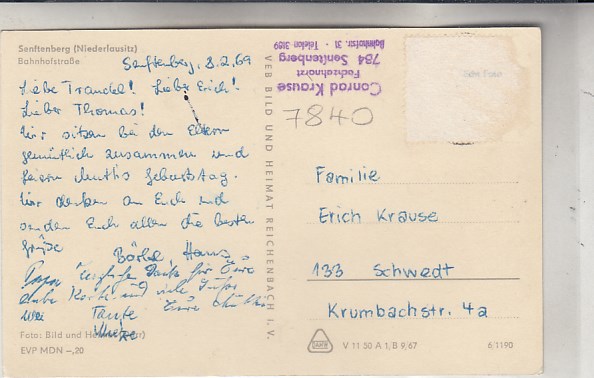 Senftenberg (Niederlausitz)
Bahnhofstraße
Senftenberg, 8.2.69
Liebe Traudel! Lieber Erich!
Lieber Thomas!
Wir sitzen bei den Eltern
gemütlich zusammen und
feiern Muttis Geburtstag.
Wir denken an Euch und
senden Euch allen die besten
Grüße
Hans
Dank für Eure
Karte und viele
Tante
Foto: Bild und
EVP MDN –,20
VEB BILD UND HEIMAT REICHENBACH I. V.
Conrad Krause
Fachzahnarzt
784 Senftenberg
Bahnhofstr. 31 · Telefon 3189
7840
Familie
Erich Krause
133 Schwedt
Krumbachstr. 4a
V 11 50 A 1, B 9/67
6/1190